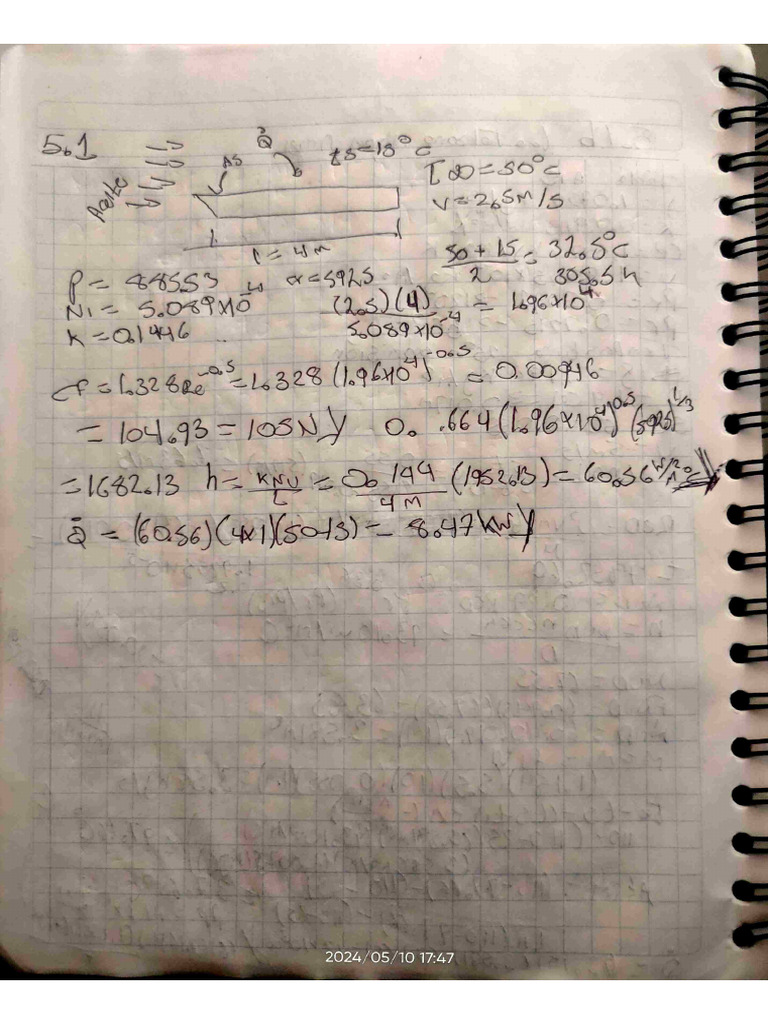 5.1
Q̇
As
ts=15°C
T∞=50°C
Aceite
V=2.5m/s
L=4m
50+15/2=32.5°C
305.5 k
ρ=885.53 α=5925
Ni=5.089x10^-4 (2.5)(4)/5.089x10^-4 = 1.96x10^4
K=0.1446
Cf=1.328Re^-0.5=1.328(1.96x10^4)^-0.5=0.00946
=104.93=105N// 0. .664(1.96x10^4)^0.5(5925)^1/3
=1682.13 h=KNU/L=0.144/4m(1952.13)=60.56
Q̇=(60.56)(4x1)(50-15)=8.47kW//
2024/05/10 17:47